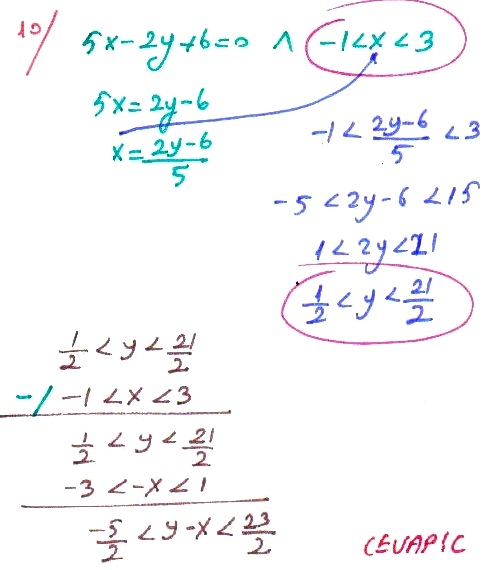 10/ 5x-2y+6=0 ∧ -1<x<3
5x=2y-6
x=2y-6/5
-1<2y-6/5<3
-5<2y-6<15
1<2y<21
1/2<y<21/2
1/2<y<21/2
-/ -1<x<3
1/2<y<21/2
-3<-x<1
-5/2<y-x<23/2
CEVAPIC